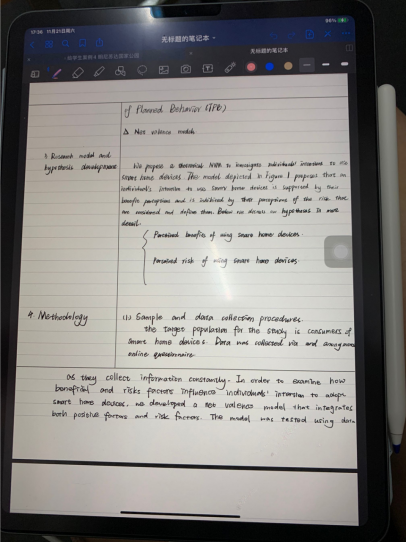 17:56 11月21日周六
96%
无标题的笔记本
无标题的笔记本
of Planned Behavior (TPB)
Δ Net valence model
3. Research model and
hypothesis development
We propose a theoretical NVM to investigate individuals' intentions to use
smart home devices. The model depicted in Figure 1 proposes that an
individual's intention to use smart home devices is supported by their
benefit perceptions and is inhibited by their perceptions of the risk that
are considered and define them. Below we discuss our hypothesis in more
detail.
Perceived benefits of using smart home devices.
Perceived risk of using smart home devices.
4. Methodology
(1) Sample and data collection procedures.
the target population for the study is consumers of
smart home devices. Data was collected via and anonymous
online questionnaire
as they collect information constantly. In order to examine how
beneficial and risks factors influence individuals' intention to adopt
smart home devices, we developed a net valence model that integrates
both positive factors and risk factors. The model was tested using data